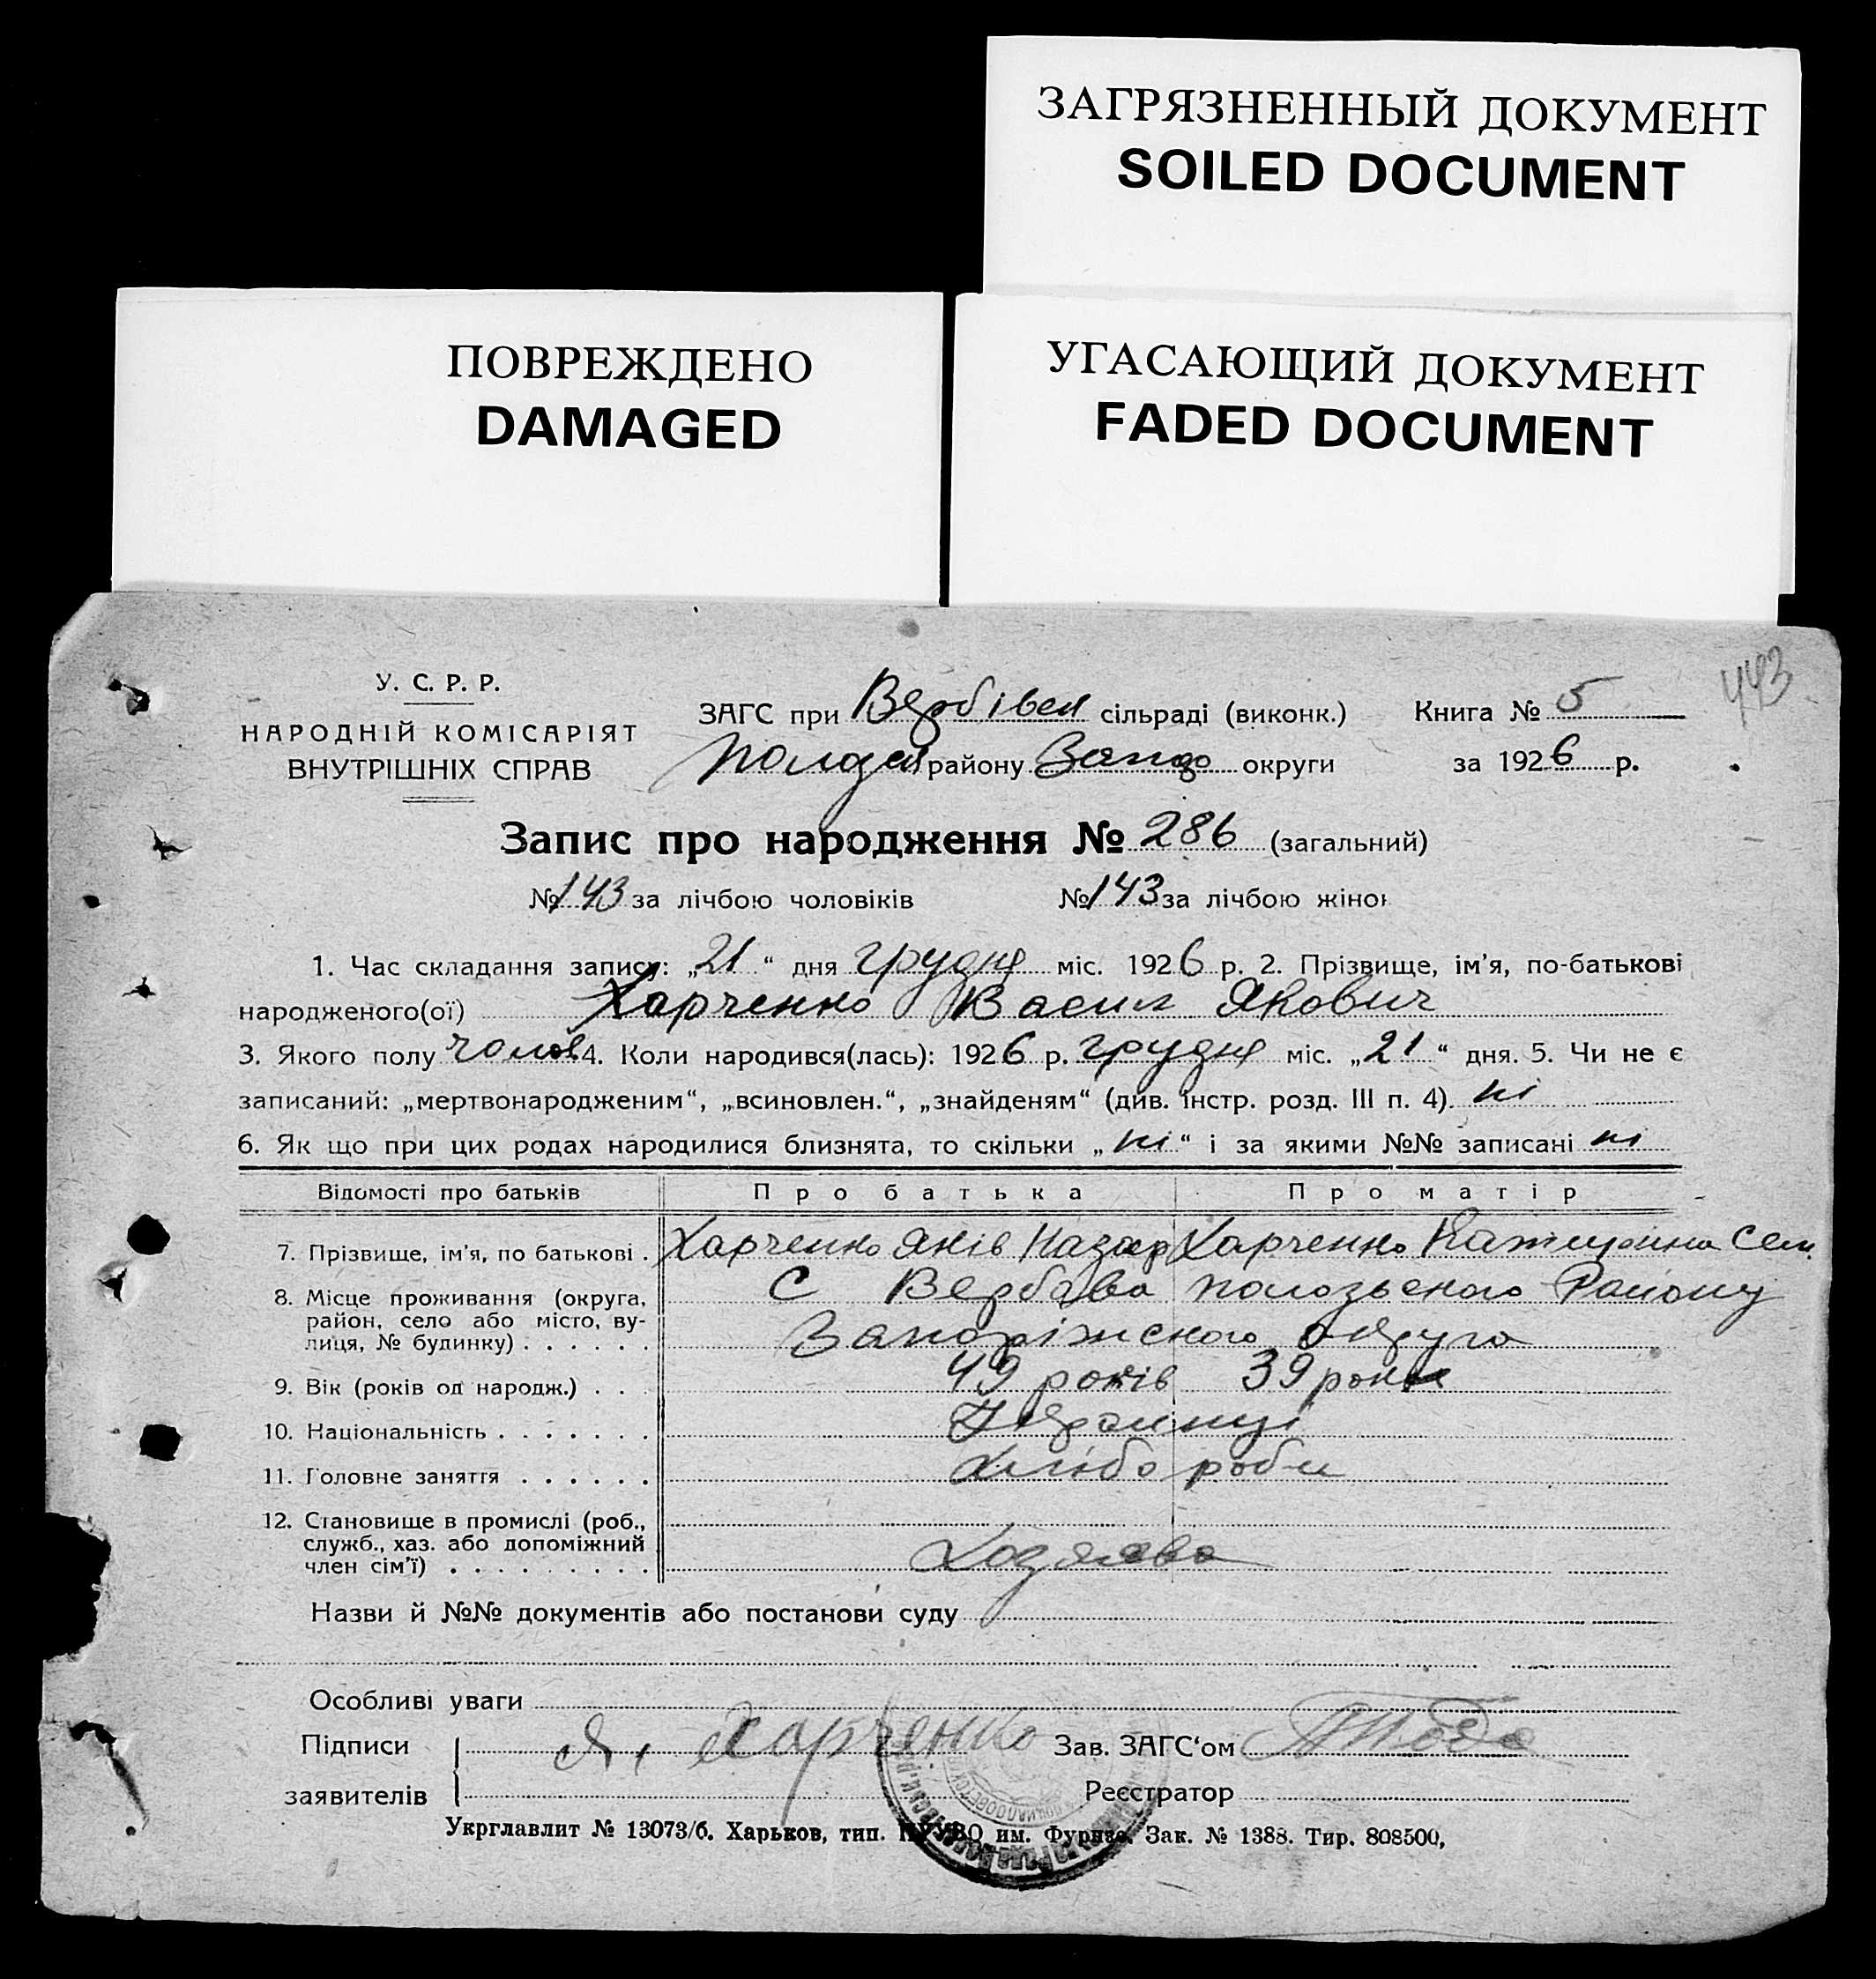 ЗАГРЯЗНЕННЫЙ ДОКУМЕНТ
SOILED DOCUMENT
ПОВРЕЖДЕНО
DAMAGED
УГАСАЮЩИЙ ДОКУМЕНТ
FADED DOCUMENT
443
У. С. Р. Р.
НАРОДНІЙ КОМІСАРІЯТ
ВНУТРІШНІХ СПРАВ
ЗАГС при Вербівск сільраді (виконк.) Книга № 5
району округи за 1926 р.
Запис про народження № 286 (загальний)
№ 143 за лічбою чоловіків № 143 за лічбою жінок
1. Час складання запису: „21“ дня грудня міс. 1926 р. 2. Прізвище, ім'я, по-батькові
народженого(ої) Харченко Васил Якович
3. Якого полу чолов 4. Коли народився(лась): 1926 р. грудня міс. „21“ дня. 5. Чи не є
записаний: „мертвонародженим“, „всиновлен.“, „знайденям“ (див. інстр. розд. III п. 4). ні
6. Як що при цих родах народилися близнята, то скільки „ні“ і за якими №№ записані ні
Відомості про батьків Про батька Про матір
7. Прізвище, ім'я, по батькові . Харченко Яків Назар Харченко Катерина Сем.
8. Місце проживання (округа, район, село або місто, вулиця, № будинку) . . . . . . С Вербова Пологського Району
Запоріжского округа
9. Вік (років од народж.) . . . 49 років 39 роки
10. Національність . . . . . . . Українці
11. Головне заняття . . . . . . Хлібороби
12. Становище в промислі (роб., служб., хаз. або допоміжний член сім'ї) . . . . . . . . . Хозяева
Назви й №№ документів або постанови суду
Особливі уваги
Підписи Я. Харченко Зав. ЗАГС'ом
заявителів Реєстратор
Укрглавлит № 13073/б. Харьков, тип. им. Фрунзе. Зак. № 1388. Тир. 808500,